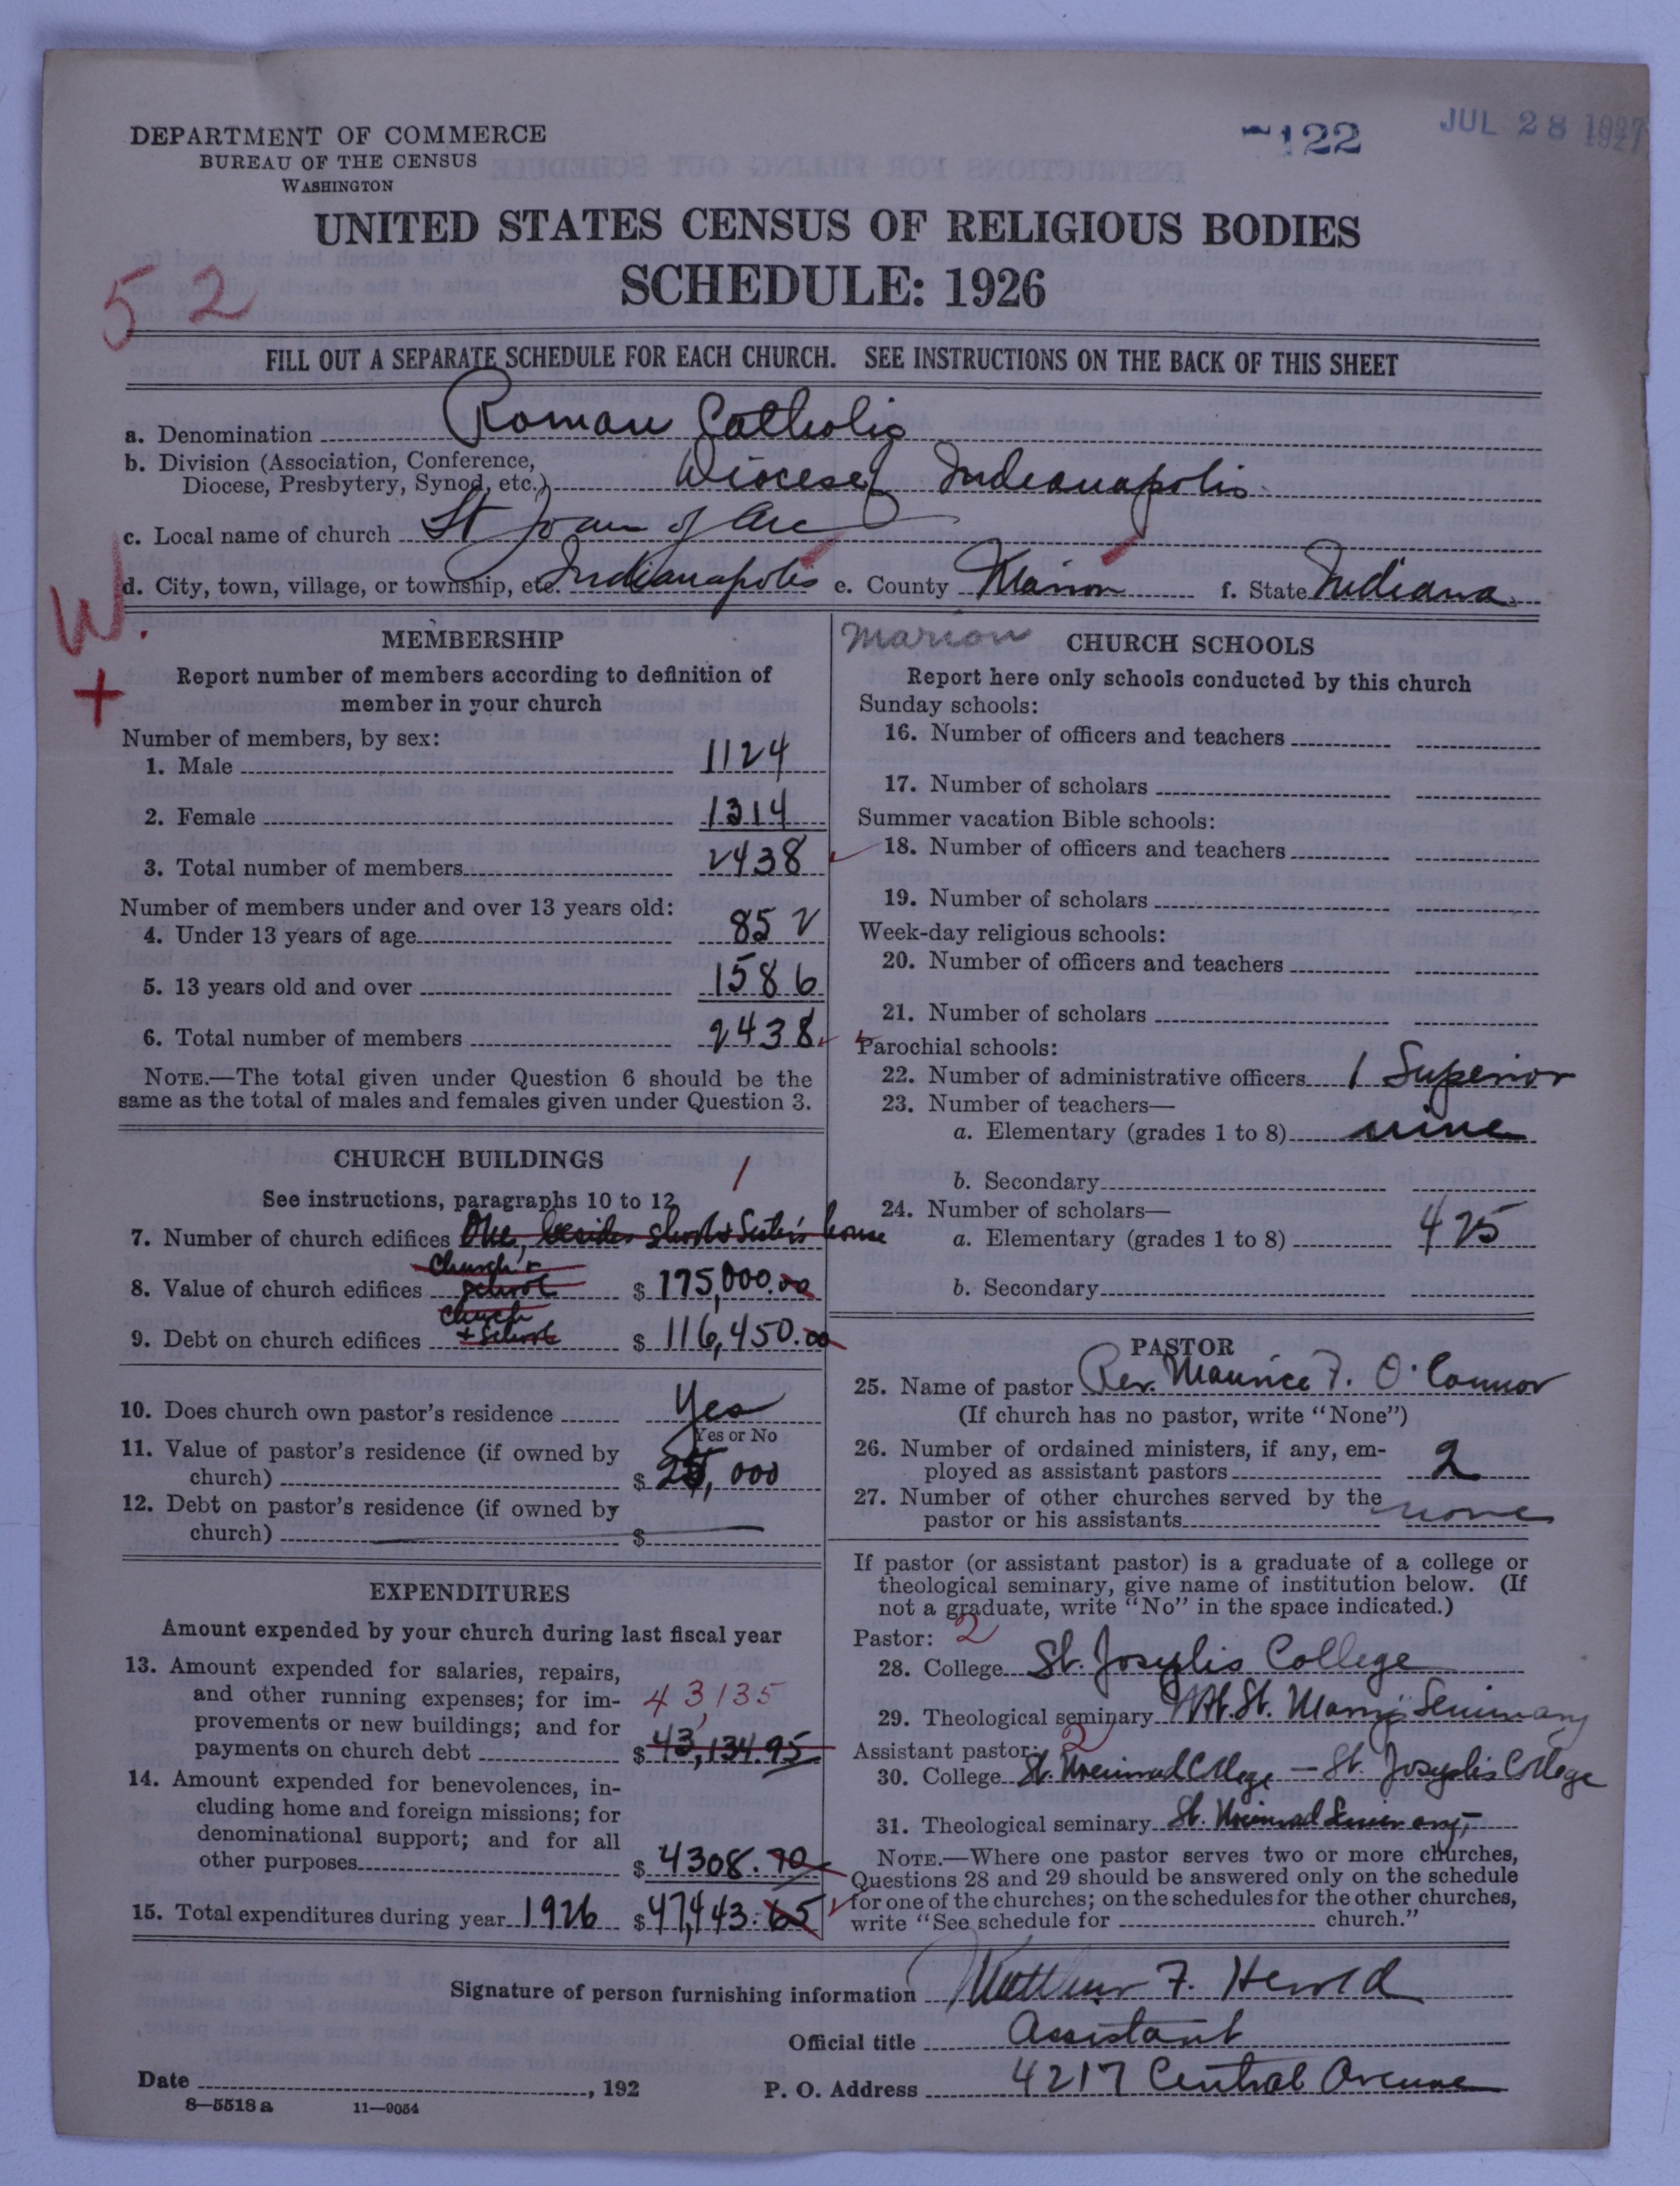 DEPARTMENT OF COMMERCE
BUREAU OF THE CENSUS
WASHINGTON
122
JUL 28 1927
UNITED STATES CENSUS OF RELIGIOUS BODIES
SCHEDULE: 1926
52
FILL OUT A SEPARATE SCHEDULE FOR EACH CHURCH. SEE INSTRUCTIONS ON THE BACK OF THIS SHEET
a. Denomination Roman Catholic
b. Division (Association, Conference, Diocese, Presbytery, Synod, etc.) Diocese of Indianapolis
c. Local name of church St Joan of Arc
d. City, town, village, or township, etc. Indianapolis e. County Marion f. State Indiana
W.
+
MEMBERSHIP
Report number of members according to definition of
member in your church
Number of members, by sex:
1. Male 1124
2. Female 1314
3. Total number of members 2438
Number of members under and over 13 years old:
4. Under 13 years of age 852
5. 13 years old and over 1586
6. Total number of members 2438
NOTE.—The total given under Question 6 should be the
same as the total of males and females given under Question 3.
CHURCH BUILDINGS
See instructions, paragraphs 10 to 12
1
7. Number of church edifices One, besides school & Sister's house
8. Value of church edifices Church & School $ 175,000.00
9. Debt on church edifices Church + School $ 116,450.00
10. Does church own pastor's residence Yes
Yes or No
11. Value of pastor's residence (if owned by
church) $ 25,000
12. Debt on pastor's residence (if owned by
church) $
EXPENDITURES
Amount expended by your church during last fiscal year
13. Amount expended for salaries, repairs,
and other running expenses; for im-
provements or new buildings; and for
payments on church debt $ 43,134.95
43,135
14. Amount expended for benevolences, in-
cluding home and foreign missions; for
denominational support; and for all
other purposes $ 4308.70
15. Total expenditures during year 1926 $ 47,443.65
Marion
CHURCH SCHOOLS
Report here only schools conducted by this church
Sunday schools:
16. Number of officers and teachers
17. Number of scholars
Summer vacation Bible schools:
18. Number of officers and teachers
19. Number of scholars
Week-day religious schools:
20. Number of officers and teachers
21. Number of scholars
Parochial schools:
22. Number of administrative officers 1 Superior
23. Number of teachers—
a. Elementary (grades 1 to 8) nine
b. Secondary
24. Number of scholars—
a. Elementary (grades 1 to 8) 425
b. Secondary
PASTOR
25. Name of pastor Rev. Maurice F. O'Connor
(If church has no pastor, write "None")
26. Number of ordained ministers, if any, em-
ployed as assistant pastors 2
27. Number of other churches served by the
pastor or his assistants none
If pastor (or assistant pastor) is a graduate of a college or
theological seminary, give name of institution below. (If
not a graduate, write "No" in the space indicated.)
Pastor: 2
28. College St. Joseph's College
29. Theological seminary Mt. St. Mary's Seminary
Assistant pastor: 2
30. College St. Meinrad College — St. Joseph's College
31. Theological seminary St. Meinrad Seminary,
NOTE.—Where one pastor serves two or more churches,
Questions 28 and 29 should be answered only on the schedule
for one of the churches; on the schedules for the other churches,
write "See schedule for church."
Signature of person furnishing information Matthew F. Herold
Official title Assistant
Date , 192
P. O. Address 4217 Central Avenue
8—5518 a 11—9054